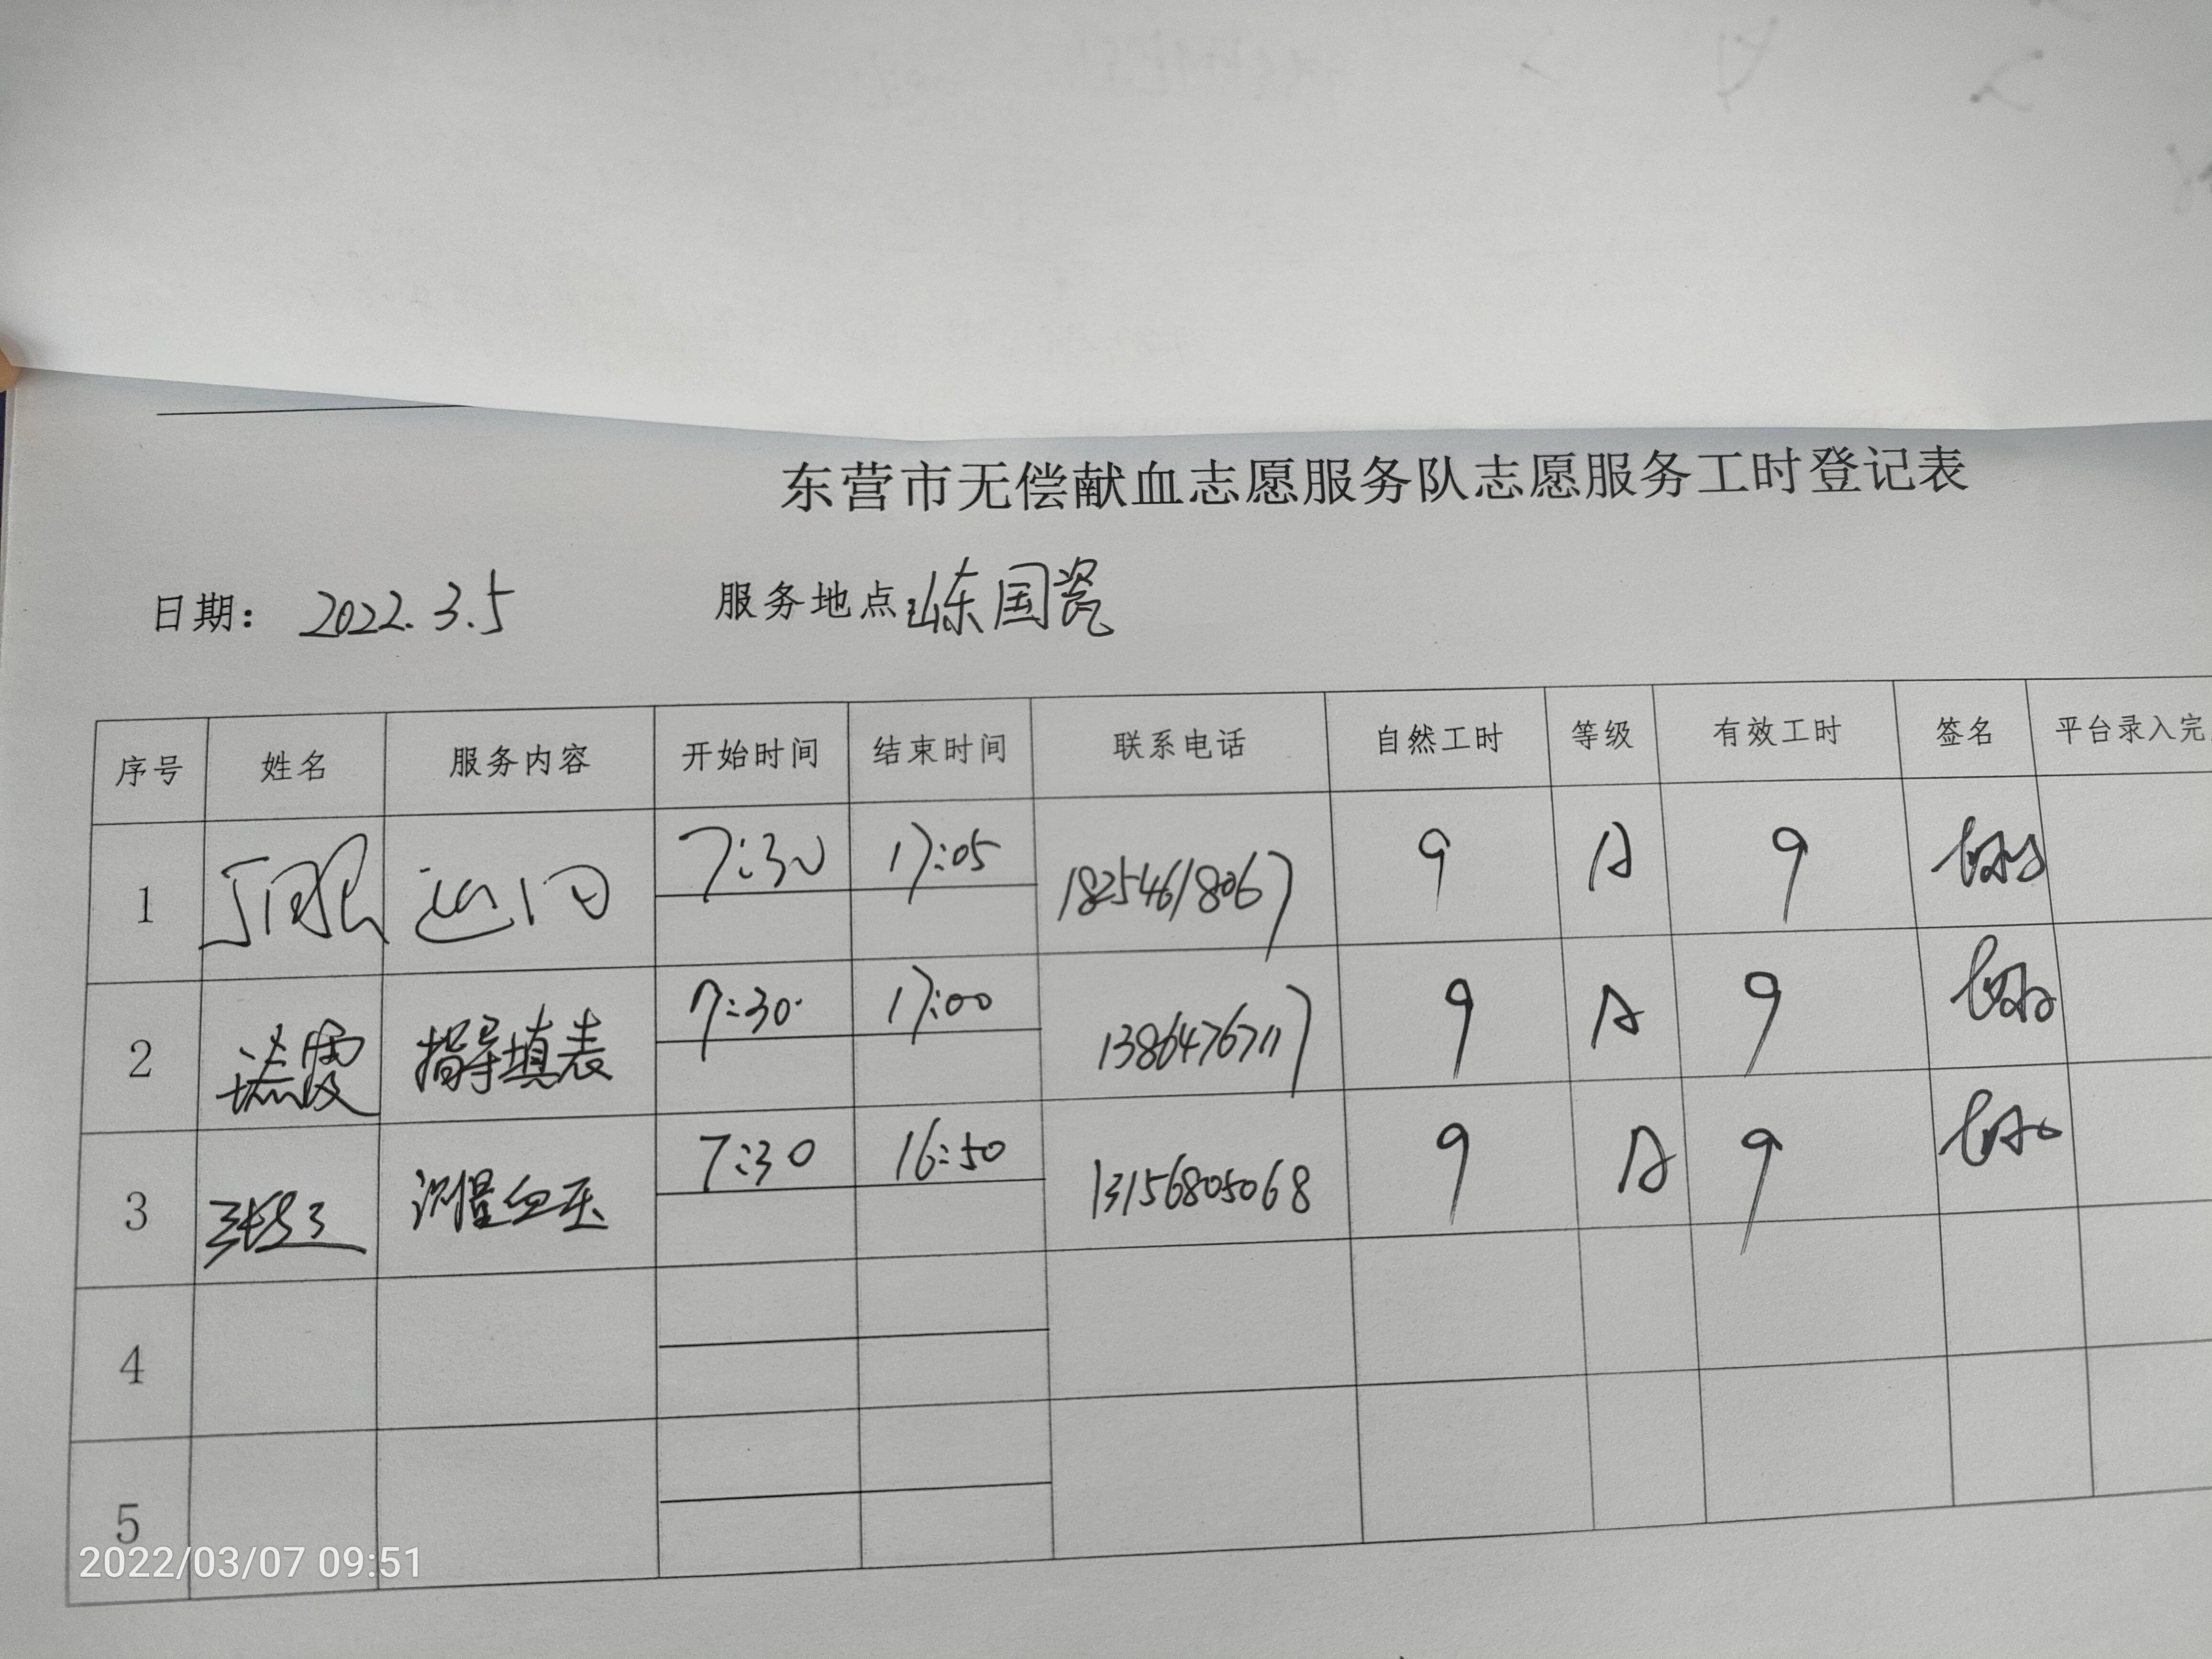 东营市无偿献血志愿服务队志愿服务工时登记表
日期： 2022.3.5 服务地点 山东国瓷
序号 姓名 服务内容 开始时间 结束时间 联系电话 自然工时 等级 有效工时 签名 平台录入完
1 7:30 17:05 18254618067 9 A 9
2 指导填表 7:30 17:00 13864767117 9 A 9
3 测量血压 7:30 16:50 13156805068 9 A 9
4
5
2022/03/07 09:51